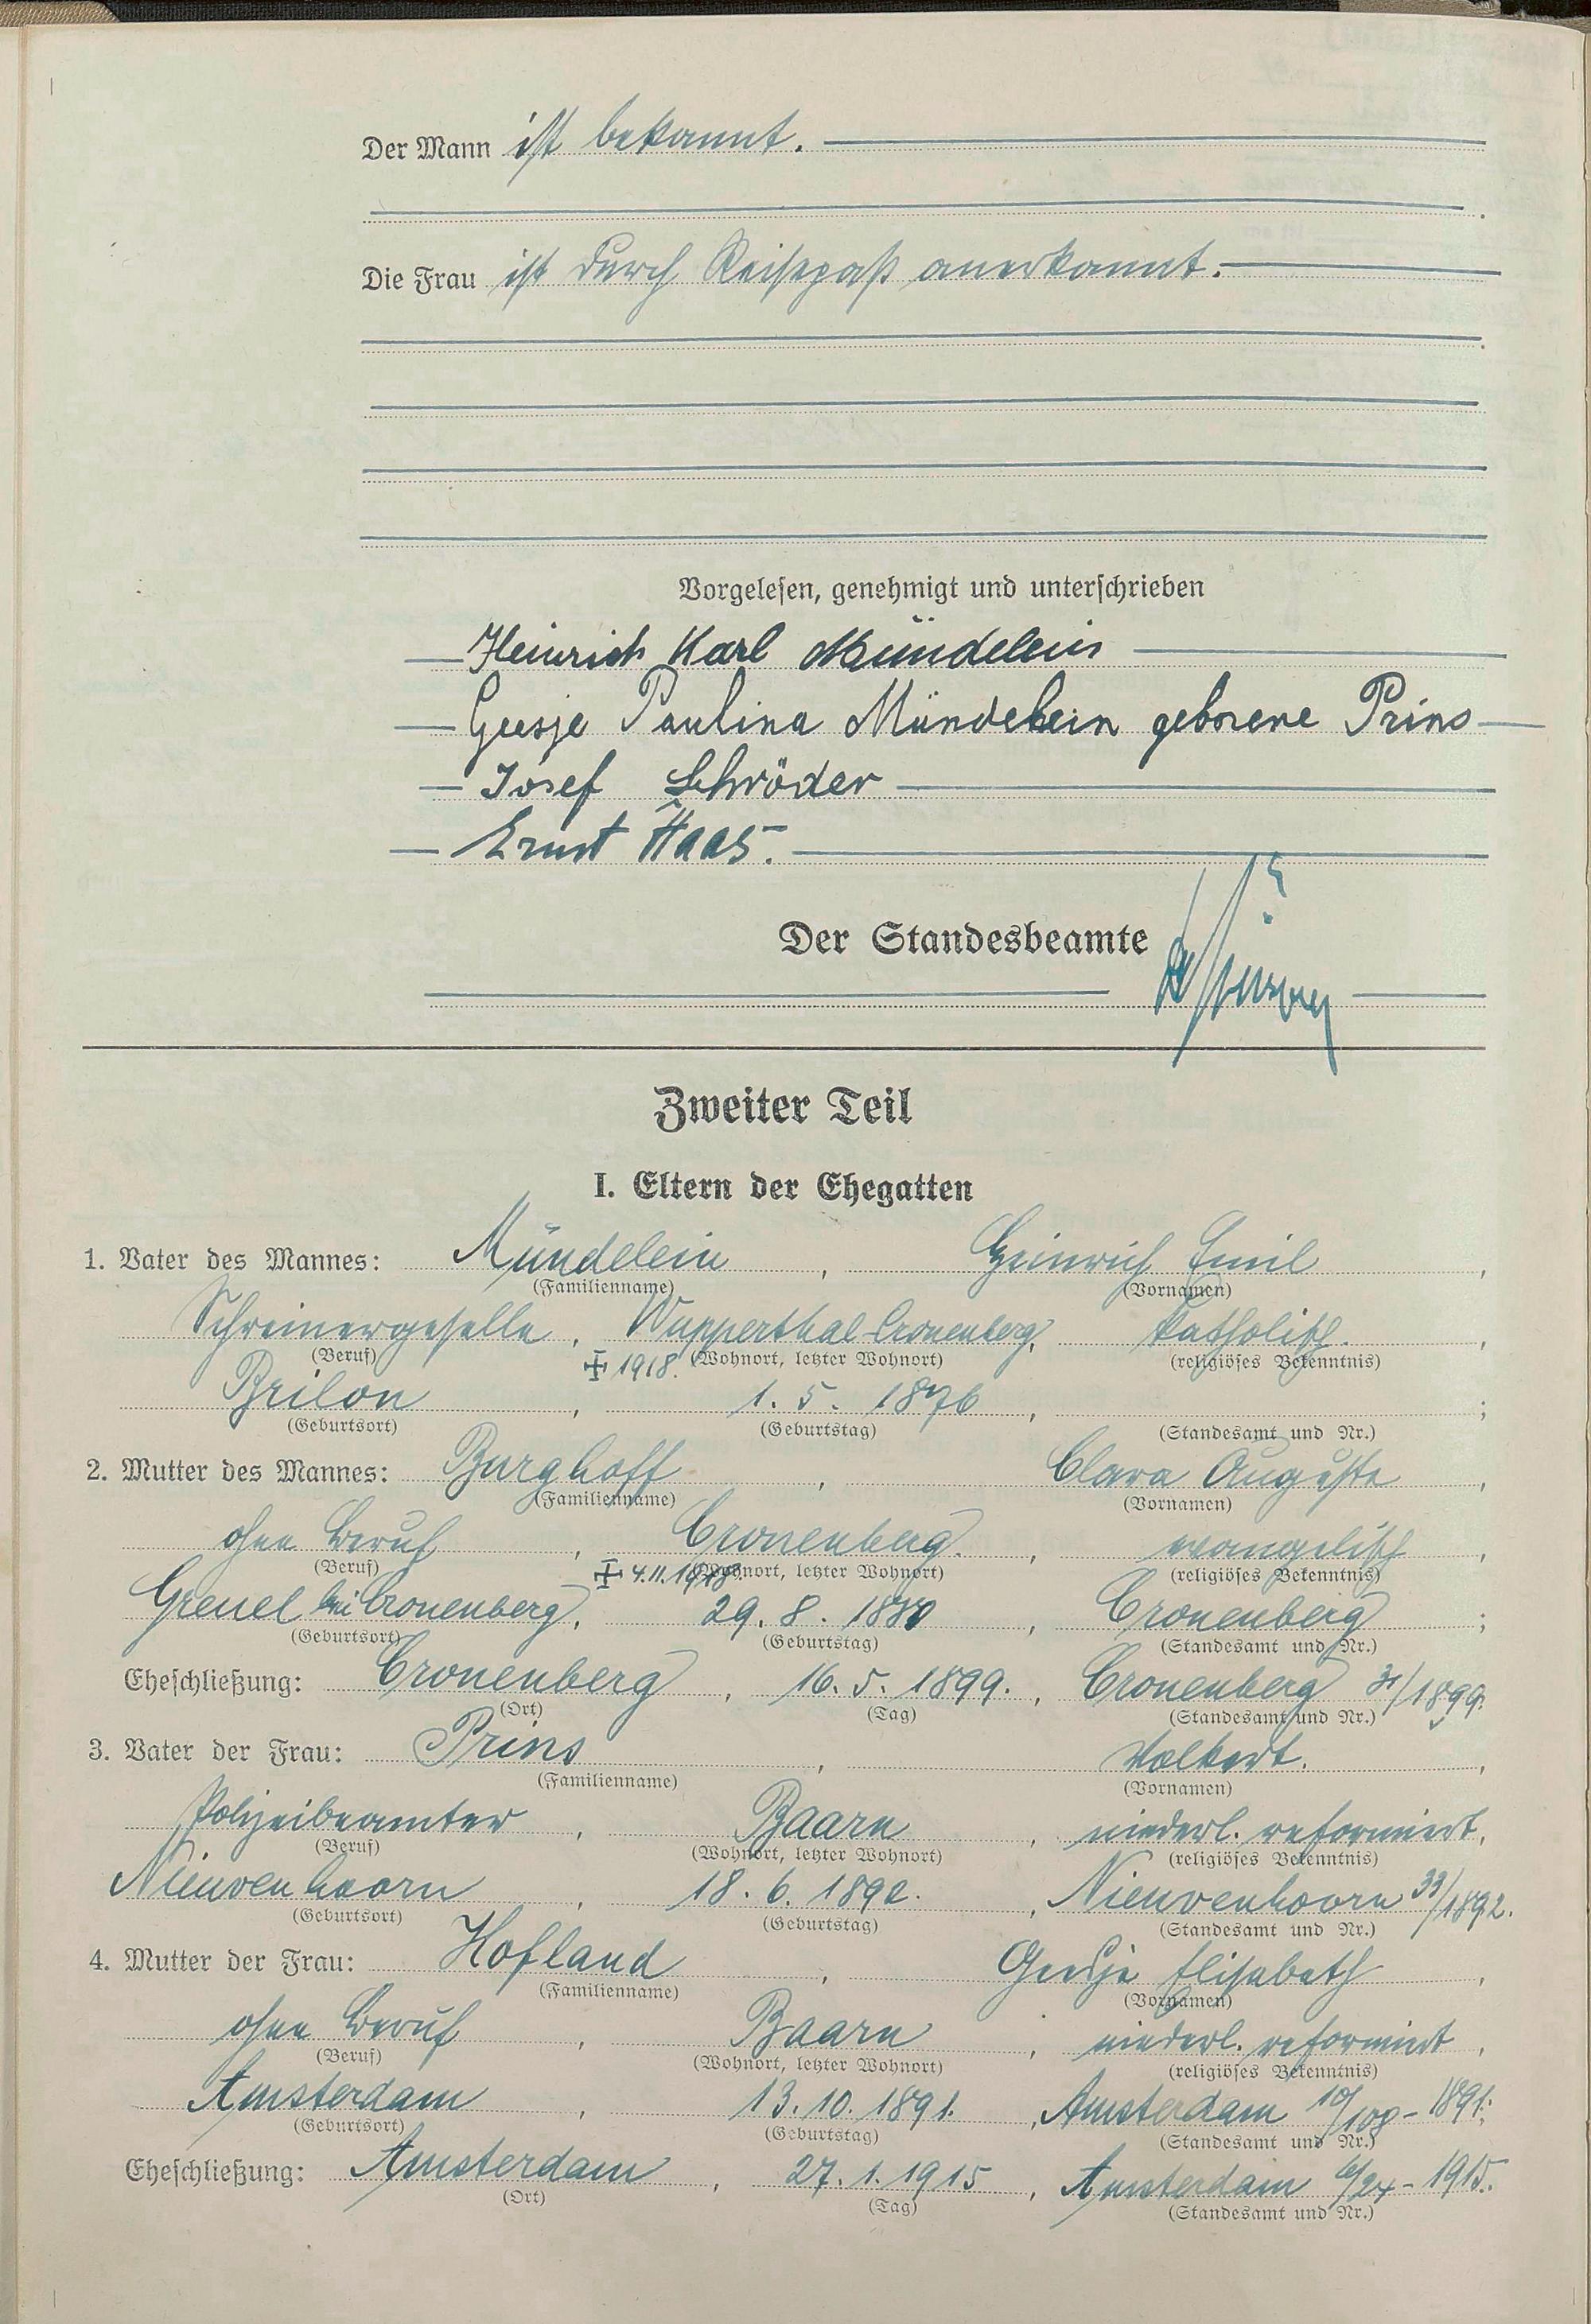 Der Mann ist bekannt.
Die Frau ist durch Reisepaß anerkannt.
Vorgelesen, genehmigt und unterschrieben
Heinrich Karl Mündelein
Geesje Paulina Mündelein geborene Prins
Josef Schröder
Ernst Haas.
Der Standesbeamte
Zweiter Teil
I. Eltern der Ehegatten
1. Vater des Mannes: Mündelein, Heinrich Emil,
(Familienname) (Vornamen)
Schreinergeselle, Wupperthal-Cronenberg, katholisch.,
(Beruf) ✠ 1918. (Wohnort, letzter Wohnort) (religiöses Bekenntnis)
Brilon, 1. 5. 1876,
(Geburtsort) (Geburtstag) (Standesamt und Nr.)
2. Mutter des Mannes: Burghoff, Clara Auguste,
(Familienname) (Vornamen)
ohne Beruf, Cronenberg., evangelisch,
(Beruf) ✠ 4.11. (Wohnort, letzter Wohnort) (religiöses Bekenntnis)
Greuel bei Cronenberg, 29. 8. 1880, Cronenberg;
(Geburtsort) (Geburtstag) (Standesamt und Nr.)
Eheschließung: Cronenberg, 16. 5. 1899., Cronenberg 31/1899.
(Ort) (Tag) (Standesamt und Nr.)
3. Vater der Frau: Prins, Volkert.,
(Familienname) (Vornamen)
Polizeibeamter, Baarn, niederl. reformiert,
(Beruf) (Wohnort, letzter Wohnort) (religiöses Bekenntnis)
Nieuvenhoorn, 18. 6. 1892., Nieuvenhoorn 33/1892.
(Geburtsort) (Geburtstag) (Standesamt und Nr.)
4. Mutter der Frau: Hofland, Geesje Elisabeth,
(Familienname) (Vornamen)
ohne Beruf, Baarn, niederl. reformiert,
(Beruf) (Wohnort, letzter Wohnort) (religiöses Bekenntnis)
Amsterdam, 13. 10. 1891., Amsterdam 10/108 - 1891.;
(Geburtsort) (Geburtstag) (Standesamt und Nr.)
Eheschließung: Amsterdam, 27. 1. 1915, Amsterdam 6/24 - 1915.
(Ort) (Tag) (Standesamt und Nr.)